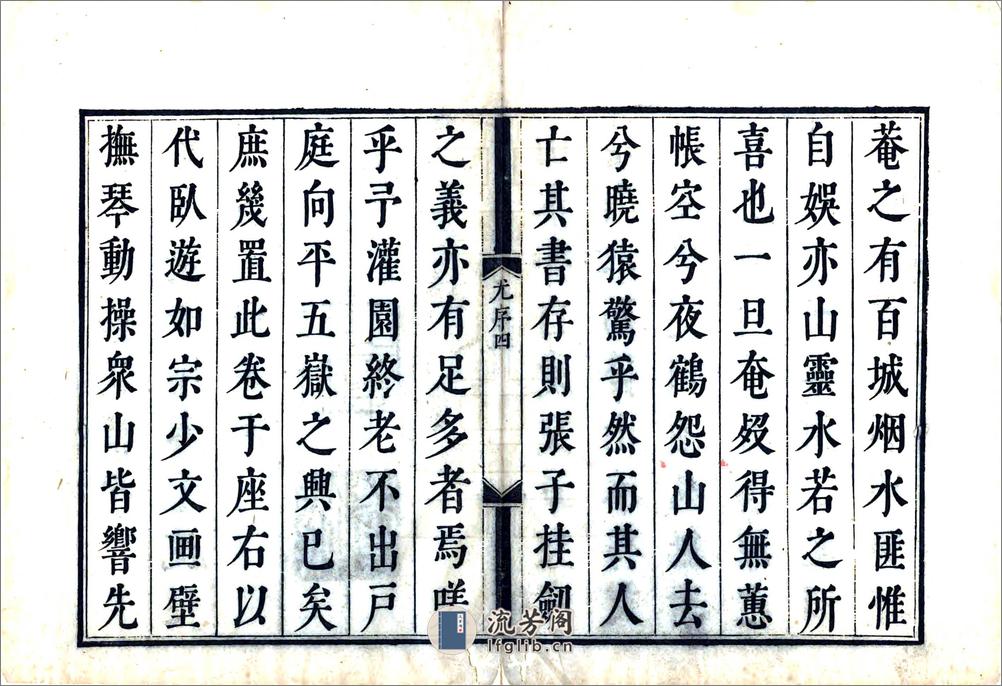 菴之有百城烟水匪惟
自娛亦山靈水若之所
喜也一旦奄歿得無蕙
帳空兮夜鶴怨山人去
兮曉猿驚乎然而其人
亡其書存則張子挂劍
尤序四
之義亦有足多者焉嗟
乎予灌園終老不出戸
庭向平五嶽之興已矣
庶幾置此卷于座右以
代臥遊如宗少文画壁
撫琴動操衆山皆響先
流芳阁
lfglib.cn